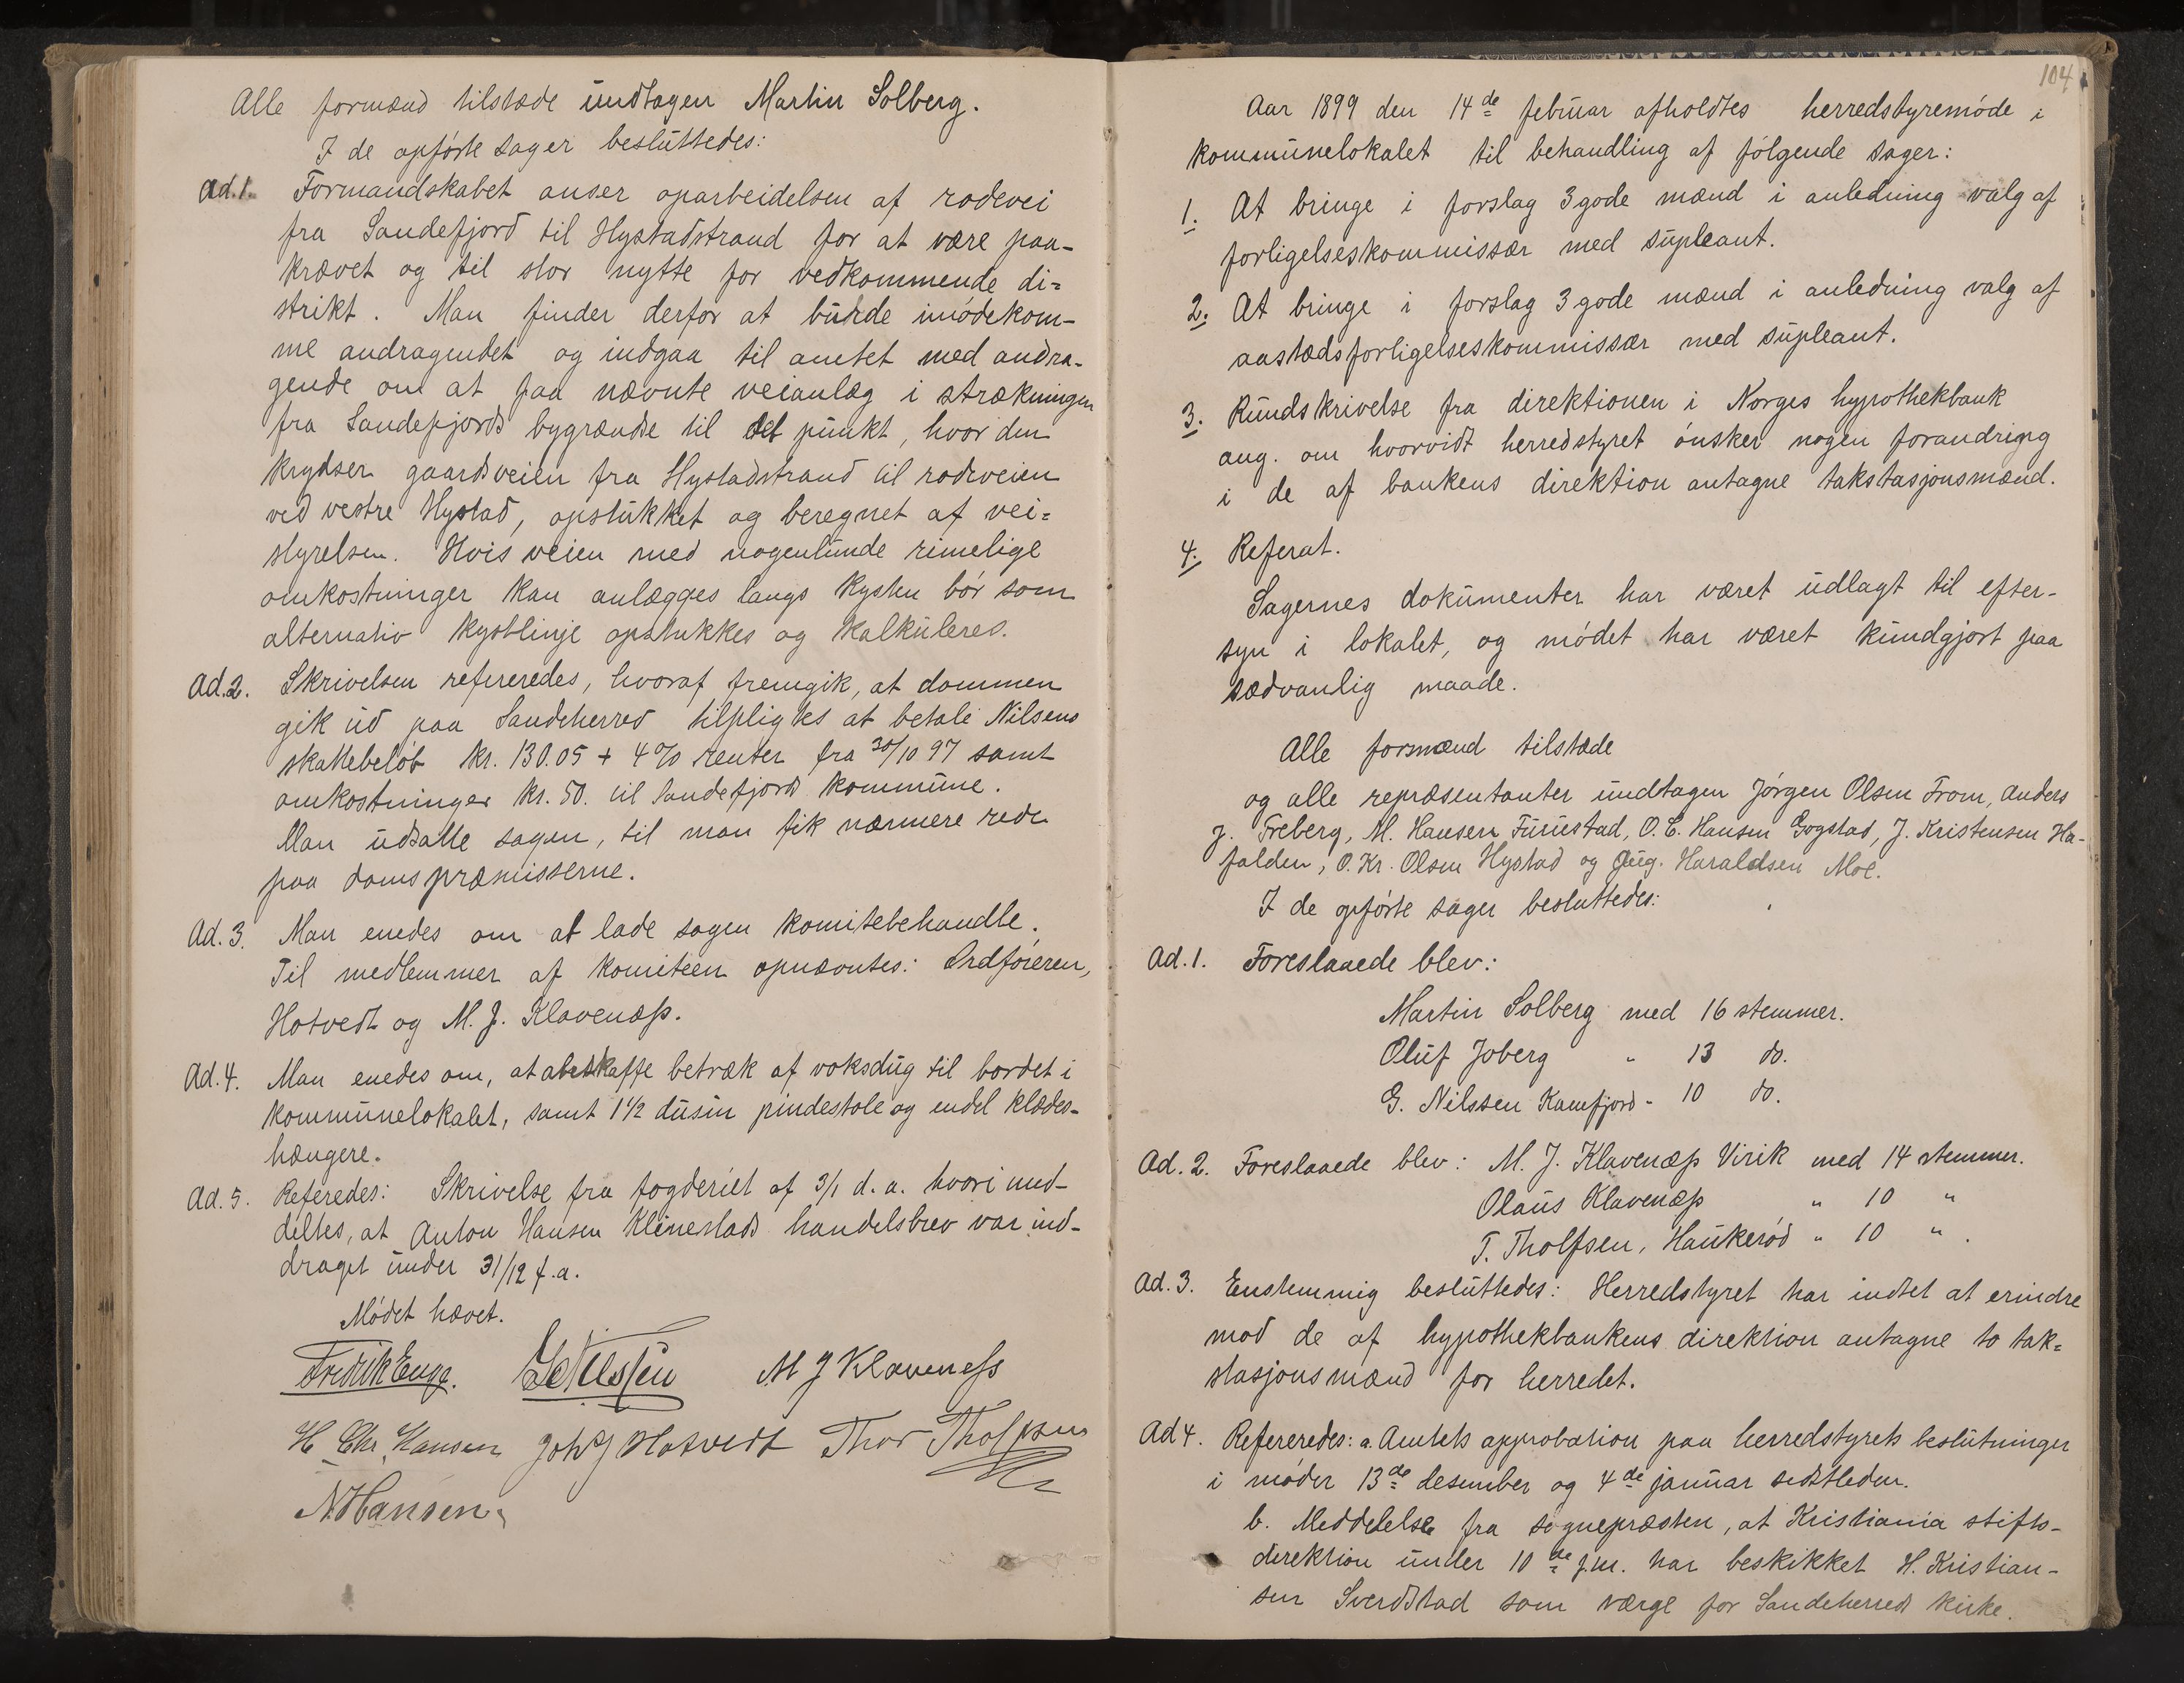 Alle formænd tilstæde undtagen Martin Solberg.
I de opførte sager besluttedes:
Ad.1. Formandskabet anser oparbeidelsen af rodevei
fra Sandefjord til Hystadstrand for at være paa-
krævet og til stor nytte for vedkommende di=
strikt. Man finder derfor at burde imødekom-
me andragendet og indgaa til amtet med andra-
gende om at faa nævnte veianlæg i strækningen
fra Sandefjords bygrændse til det punkt, hvor den
krydser gaardsveien fra Hystadstrand til rodeveien
ved vestre Hystad, opstukket og beregnet af vei=
styrelsen. Hvis veien med nogenlunde rimelige
omkostninger kan anlægges langs kysten bør som
alternativ kystlinje opstukkes og kalkuleres.
Ad.2. Skrivelsen refereredes, hvoraf fremgik, at dommen
gik ud paa Sandeherred tilpligtes at betale Nilsens
skattebeløb kr. 130.05 + 4% renter fra 30/10 97 samt
omkostninger kr. 50. til Sandefjords kommune.
Man udsatte sagen, til man fik nærmere rede
paa domspræmisserne.
Ad.3. Man enedes om at lade sagen komitebehandle.
Til medlemmer af komiteen opnævntes: Ordføreren,
Hotvedt og M. J. Klavenæss.
Ad.4. Man enedes om, at anskaffe betræk af voksdug til bordet i
kommunelokalet, samt 1 1/2 dusin pindestole og endel klædes-
hængere.
Ad.5. Referedes: Skrivelse fra fogderiet af 3/1 d. a. hvori med-
deltes, at Anton Hansen Klinestads handelsbrev var ind-
draget under 31/12 f.a.
Mødet hævet.
Fredrik Enge. M J Klaveness
H. Chr. Hansen Joh J Hotvedt Thor Tholfsen
N. Hansen.
104
Aar 1899 den 14de februar afholdtes herredstyremøde i
kommunelokalet til behandling af følgende sager:
1. At bringe i forslag 3 gode mænd i anledning valg af
forligelseskommissær med supleant.
2. At bringe i forslag 3 gode mænd i anledning valg af
aastædsforligelseskommissær med supleant.
3. Rundskrivelse fra direktionen i Norges hypothekbank
ang. om hvorvidt herredstyret ønsker nogen forandring
i de af bankens direktion antagne takstasjonsmænd.
4. Referat.
Sagernes dokumenter har været udlagt til efter-
syn i lokalet, og mødet har været kundgjort paa
sædvanlig maade.
Alle formænd tilstæde
og alle repræsentanter undtagen Jørgen Olsen From, Anders
J. Freberg, M. Hansen Furustad, O. C. Hansen Gogstad, J. Kristensen Ha-
falden, O. Kr. Olsen Hystad og Aug. Haraldsen Moe.
I de opførte sager besluttedes:
Ad.1. Foreslaaede blev:
Martin Solberg med 16 stemmer.
Oluf Joberg " 13 do.
G. Nilssen Kamfjord - 10 do.
Ad.2. Foreslaaede blev: M. J. Klavenæss Virik med 14 stemmer.
Olaus Klavenæss " 10 "
T. Tholfsen, Haukerød " 10 ".
Ad.3. Enstemmig besluttedes: Herredstyret har indtet at erindre
mod de af hypothekbankens direktion antagne to tak=
stasjonsmænd for herredet.
Ad 4. Refereredes: a. Amtets approbation paa herredstyrets beslutninger
i møder 13de desember og 4de januar sidstleden.
b. Meddelelse fra sognepræsten, at Kristiania stifts-
direktion under 10de f.m. har beskikket H. Kristian-
sen Sverdstad som værge for Sandeherreds kirke.